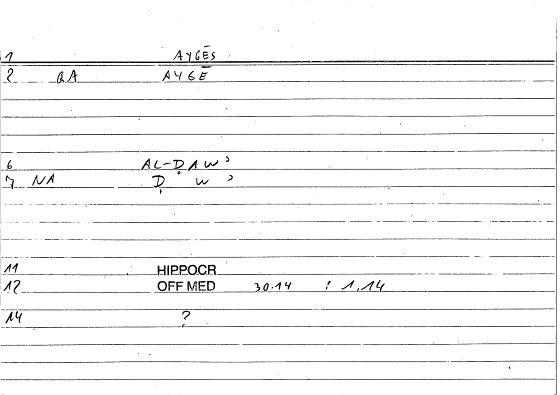 1 AYGĒS
2 QA AYGĒ
6 AL-ḌAWʾ
7 NA Ḍ W ʾ
11 HIPPOCR
12 OFF MED 30.14 : 1,14
14 ?